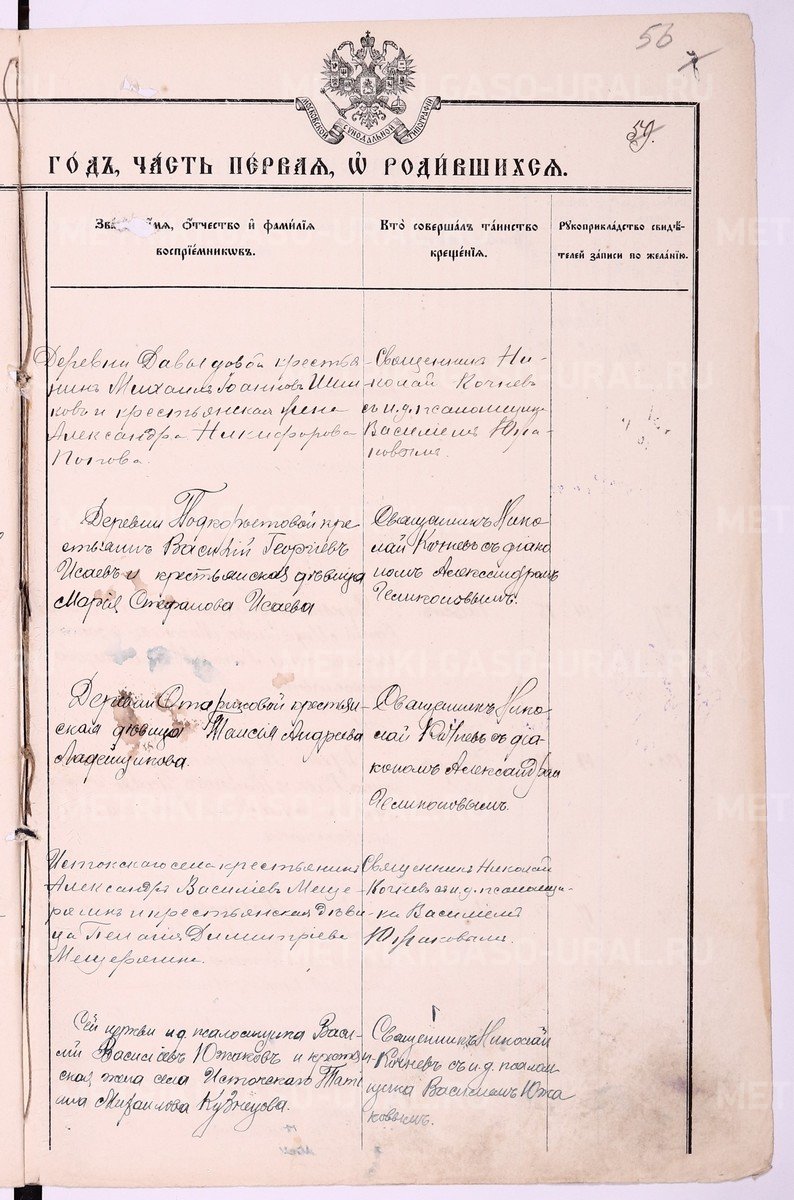 56
59.
МОСКОВСКОЙ СУНОДАЛЬНОЙ ТИПОГРАФІИ
ГОДЪ, ЧАСТЬ ПЕРВАЯ, Ѡ РОДИВШИХСЯ.
Зва ія, отчество и фамилія
воспріемниковъ.
Кто совершалъ таинство
крещенія.
Рукоприкладство свидѣ-
телей записи по желанію.
Деревни Давыдовой крестья-
нинъ Михаилъ Іоанновъ Шиш
ковъ и крестьянская жена
Александра Никифорова
Попова.
Священникъ Ни-
колай Кочневъ
съ и.д. псаломщика
Василіемъ Южа-
ковымъ.
Деревни Подкорытовой кре
стьянинъ Василій Георгіевъ
Исаевъ и крестьянская дѣвица
Марія Стефанова Исаева
Священникъ Нико
лай Кочневъ съ діако
номъ Александромъ
Геликоновымъ.
Деревни Старцовой крестьян-
ская дѣвица Таисія Андреева
Ладейщикова.
Священникъ Нико
лай Кочневъ съ діа-
кономъ Александром
Геликоновымъ.
Истокскаго села крестьянинъ
Александръ Василіевъ Меще-
рякинъ и крестьянская дѣви-
ца Пелагія Димитріева
Мещерякина.
Священникъ Николай
Кочневъ съ и.д. псаломщи-
ка Василіемъ
Южаковымъ.
Сей церкви и.д. псаломщика Васи-
лій Василіевъ Южаковъ и крестьян-
ская жена села Истокскаго Тать
яна Михаилова Кузнецова.
Священникъ Николай
Кочневъ съ и.д. псалом
щика Василіемъ Южа
ковымъ.
METRIKI.GASO-URAL.RU